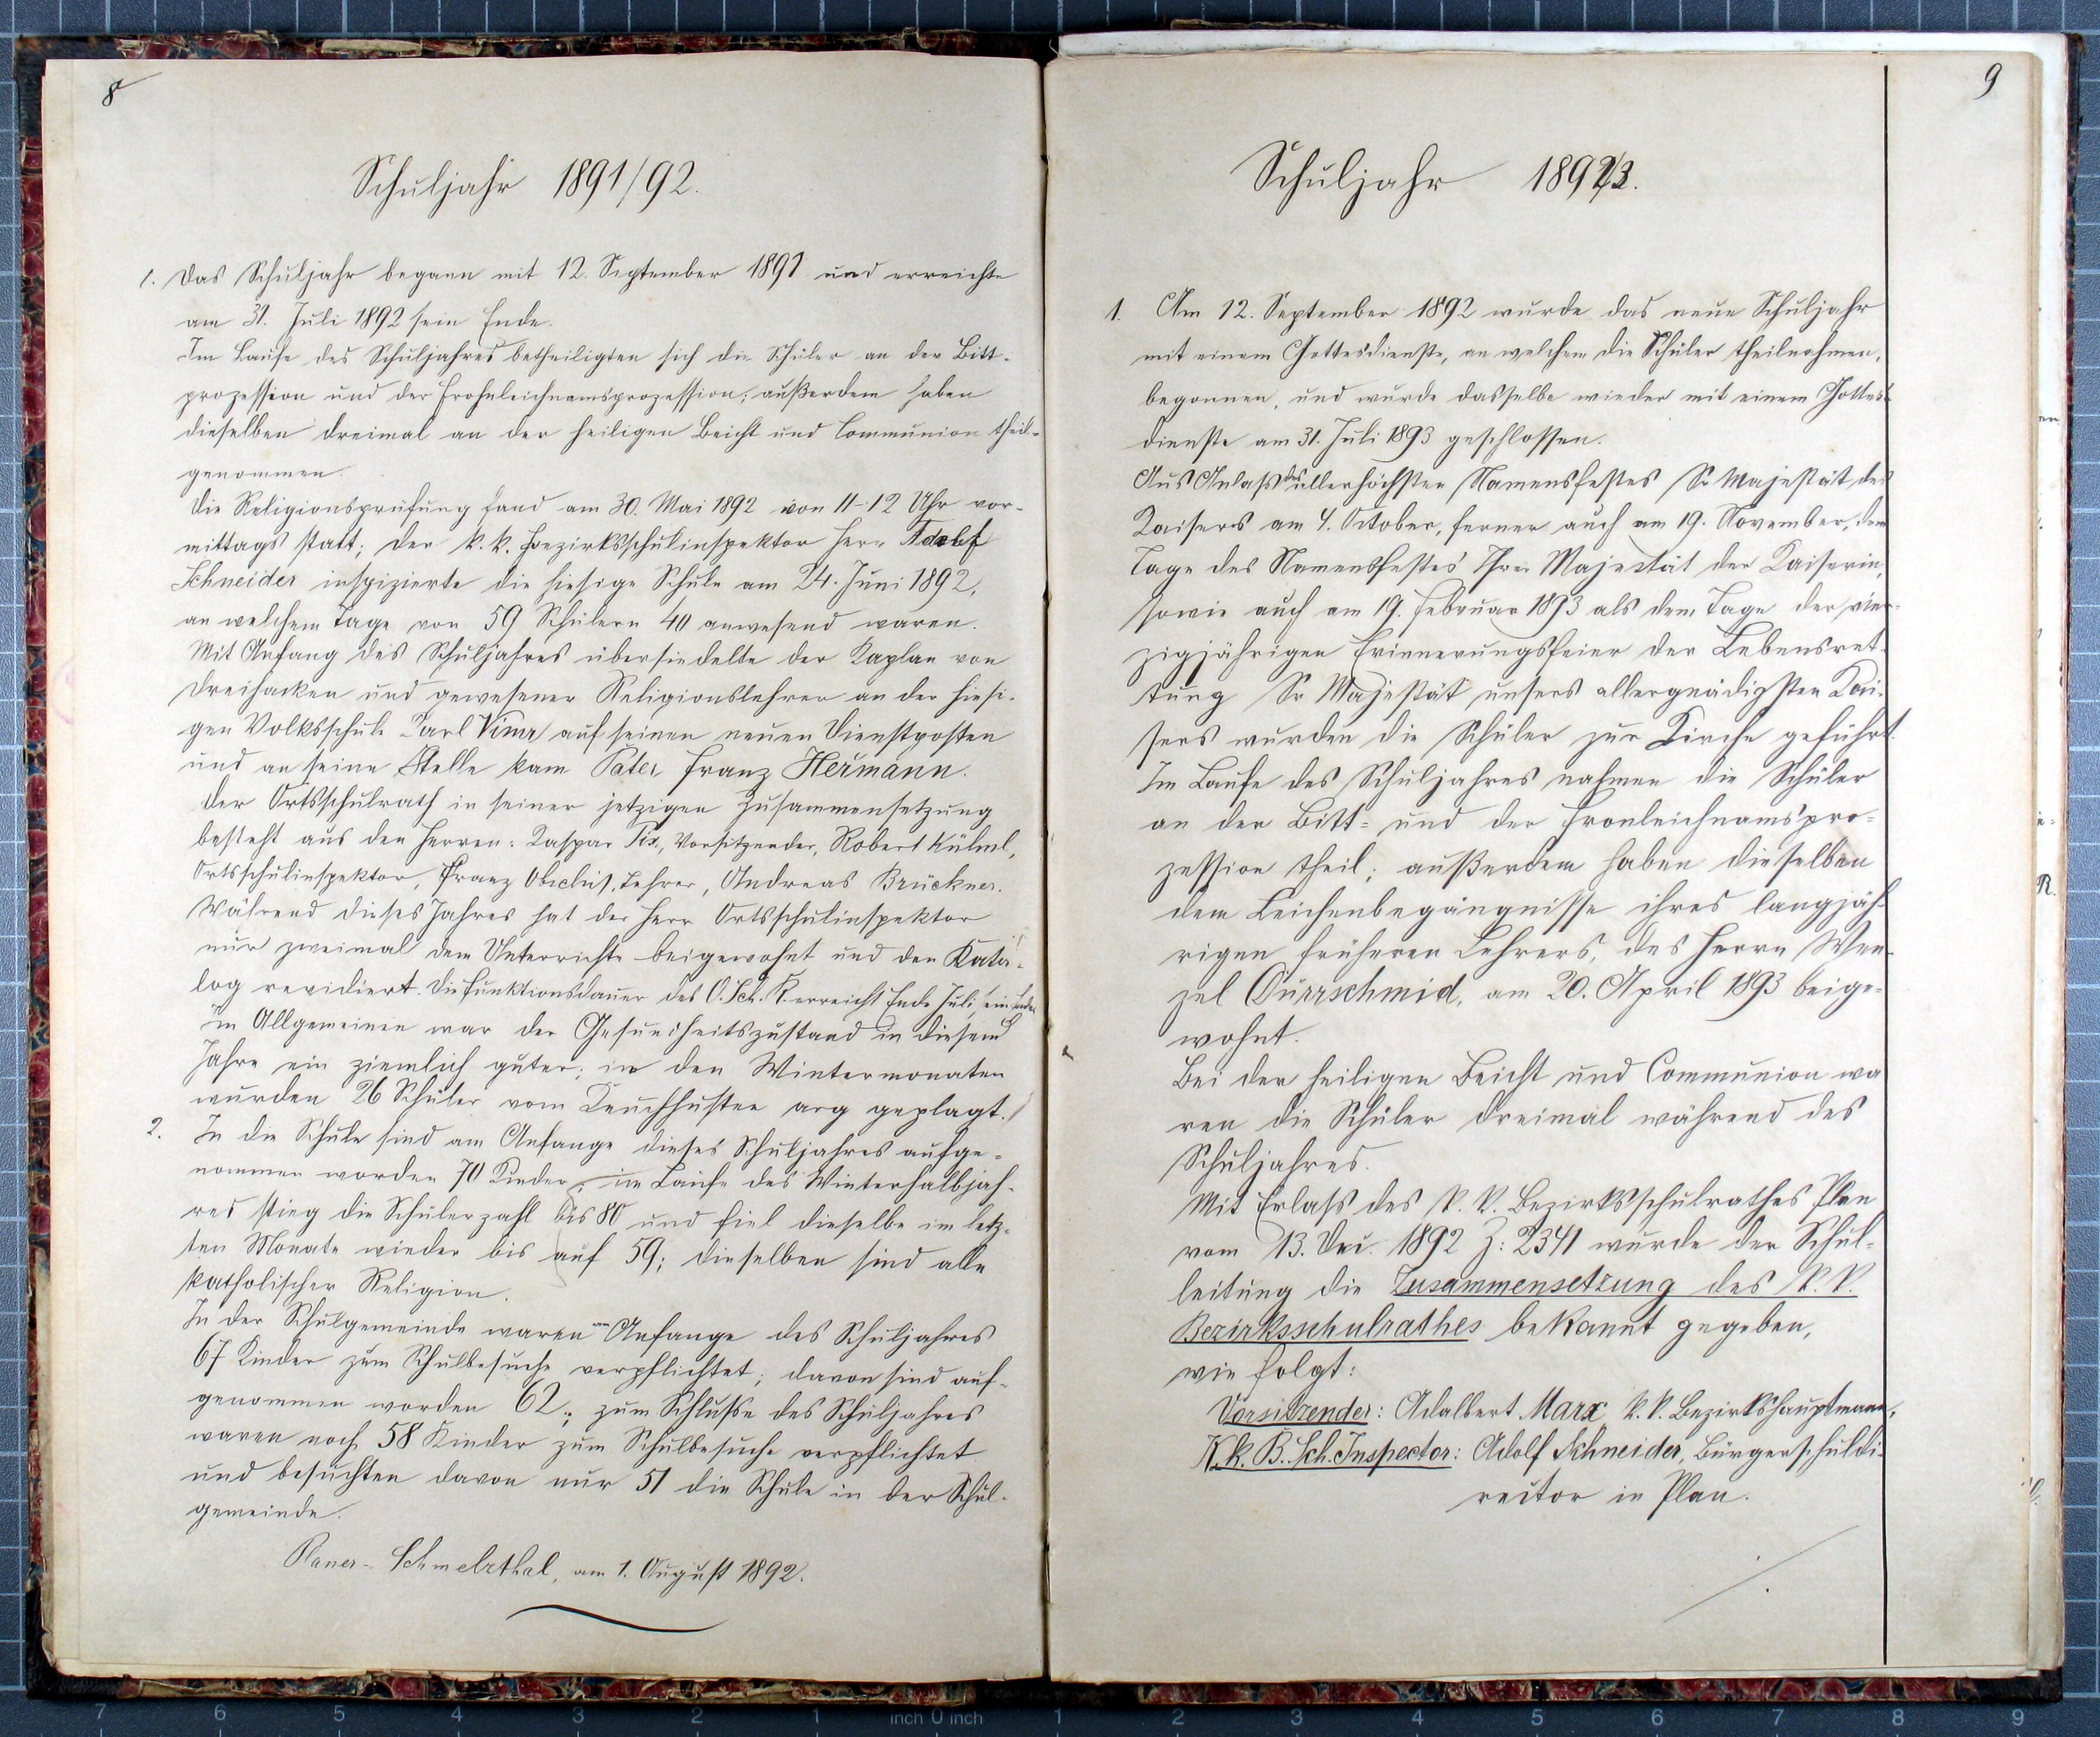 8
Schuljahr 1891/92.
1. Das Schuljahr begann mit 12. September 1891 und erreichte
am 31. Juli 1892 sein Ende.
Im Laufe des Schuljahres betheiligten sich die Schüler an der Bitt-
prozession und der Frohnleichnamsprozession; außerdem haben
dieselben dreimal an der heiligen Beicht und Communion theil-
genommen.
Die Religionsprüfung fand am 30. Mai 1892 von 11-12 Uhr vor-
mittags statt; der k. k. Bezirksschulinspektor Herr Adolf
Schneider inspizierte die hiesige Schule am 24. Juni 1892,
an welchem Tage von 59 Schülern 40 anwesend waren.
Mit Anfang des Schuljahres übersiedelte der Kaplan von
Dreihacken und gewesener Religionslehrer an der hiesi-
gen Volksschule Karl Vimr auf seinen neuen Dienstposten
und an seine Stelle kam Pater Franz Heřmann.
Der Ortsschulrath in seiner jetzigen Zusammensetzung
besteht aus den Herren: Kaspar Pix, Vorsitzender, Robert Külml,
Ortsschulinspektor, Franz Lehrer, Andreas Brückner.
Während dieses Jahres hat der Herr Ortsschulinspektor
nur zweimal dem Unterrichte beigewohnt und den Kata-
log revidiert. Die Funktionsdauer des O. Sch. R. erreicht Ende Juli ein Ende
Im Allgemeinen war der Gesundheitszustand in diesem
Jahre ein ziemlich guter; in den Wintermonaten
wurden 26 Schüler vom Keuchhusten arg geplagt.
2. In die Schule sind am Anfange dieses Schuljahres aufge-
nommen worden 70 Kinder; im Laufe des Winterhalbjah-
res stieg die Schülerzahl bis 80 und fiel dieselbe im letz-
ten Monate wieder bis auf 59; dieselben sind alle
katholischer Religion.
In der Schulgemeinde waren am Anfange des Schuljahres
67 Kinder zum Schulbesuche verpflichtet; davon sind auf-
genommen worden 62; zum Schlusse des Schuljahres
waren noch 58 Kinder zum Schulbesuche verpflichtet
und besuchten davon nur 51 die Schule in der Schul-
gemeinde.
Planer-Schmelzthal, am 1. August 1892.
9
Schuljahr 1892/3.
1. Am 12. September 1892 wurde das neue Schuljahr
mit einem Gottesdienste, an welchem die Schüler theilnahmen,
begonnen, und wurde dasselbe wieder mit einem Gottes-
dienste am 31. Juli 1893 geschlossen.
Aus Anlaß des allerhöchsten Namensfestes Sr Majestät des
Kaisers am 4. October, ferner auch am 19. November, dem
Tage des Namensfestes Ihrer Majestät der Kaiserin,
sowie auch am 19. Februar 1893 als dem Tage der vier-
zigjährigen Erinnerungsfeier der Lebensret-
tung Sr Majestät unsers allergnädigsten Kai-
sers wurden die Schüler zur Kirche geführt.
Im Laufe des Schuljahres nahmen die Schüler
an der Bitt- und der Fronleichnamspro-
zession theil; außerdem haben dieselben
dem Leichenbegängnisse ihres langjäh-
rigen früheren Lehrers, des Herrn Wen-
zel Dürrschmid, am 20. April 1893 beige-
wohnt.
Bei der heiligen Beicht und Communion wa
ren die Schüler dreimal während des
Schuljahres.
Mit Erlaß des k. k. Bezirksschulrathes Plan
vom 13. Dec. 1892 Z: 2341 wurde der Schul-
leitung die Zusammensetzung des k. k.
Bezirksschulrathes bekannt gegeben,
wie folgt:
Vorsitzender: Adalbert Marx k. k. Bezirkshauptmann,
K. k. B. Sch. Inspector: Adolf Schneider, Bürgerschuldi-
rector in Plan.
7 6 5 4 3 2 1 inch 0 inch 1 2 3 4 5 6 7 8 9